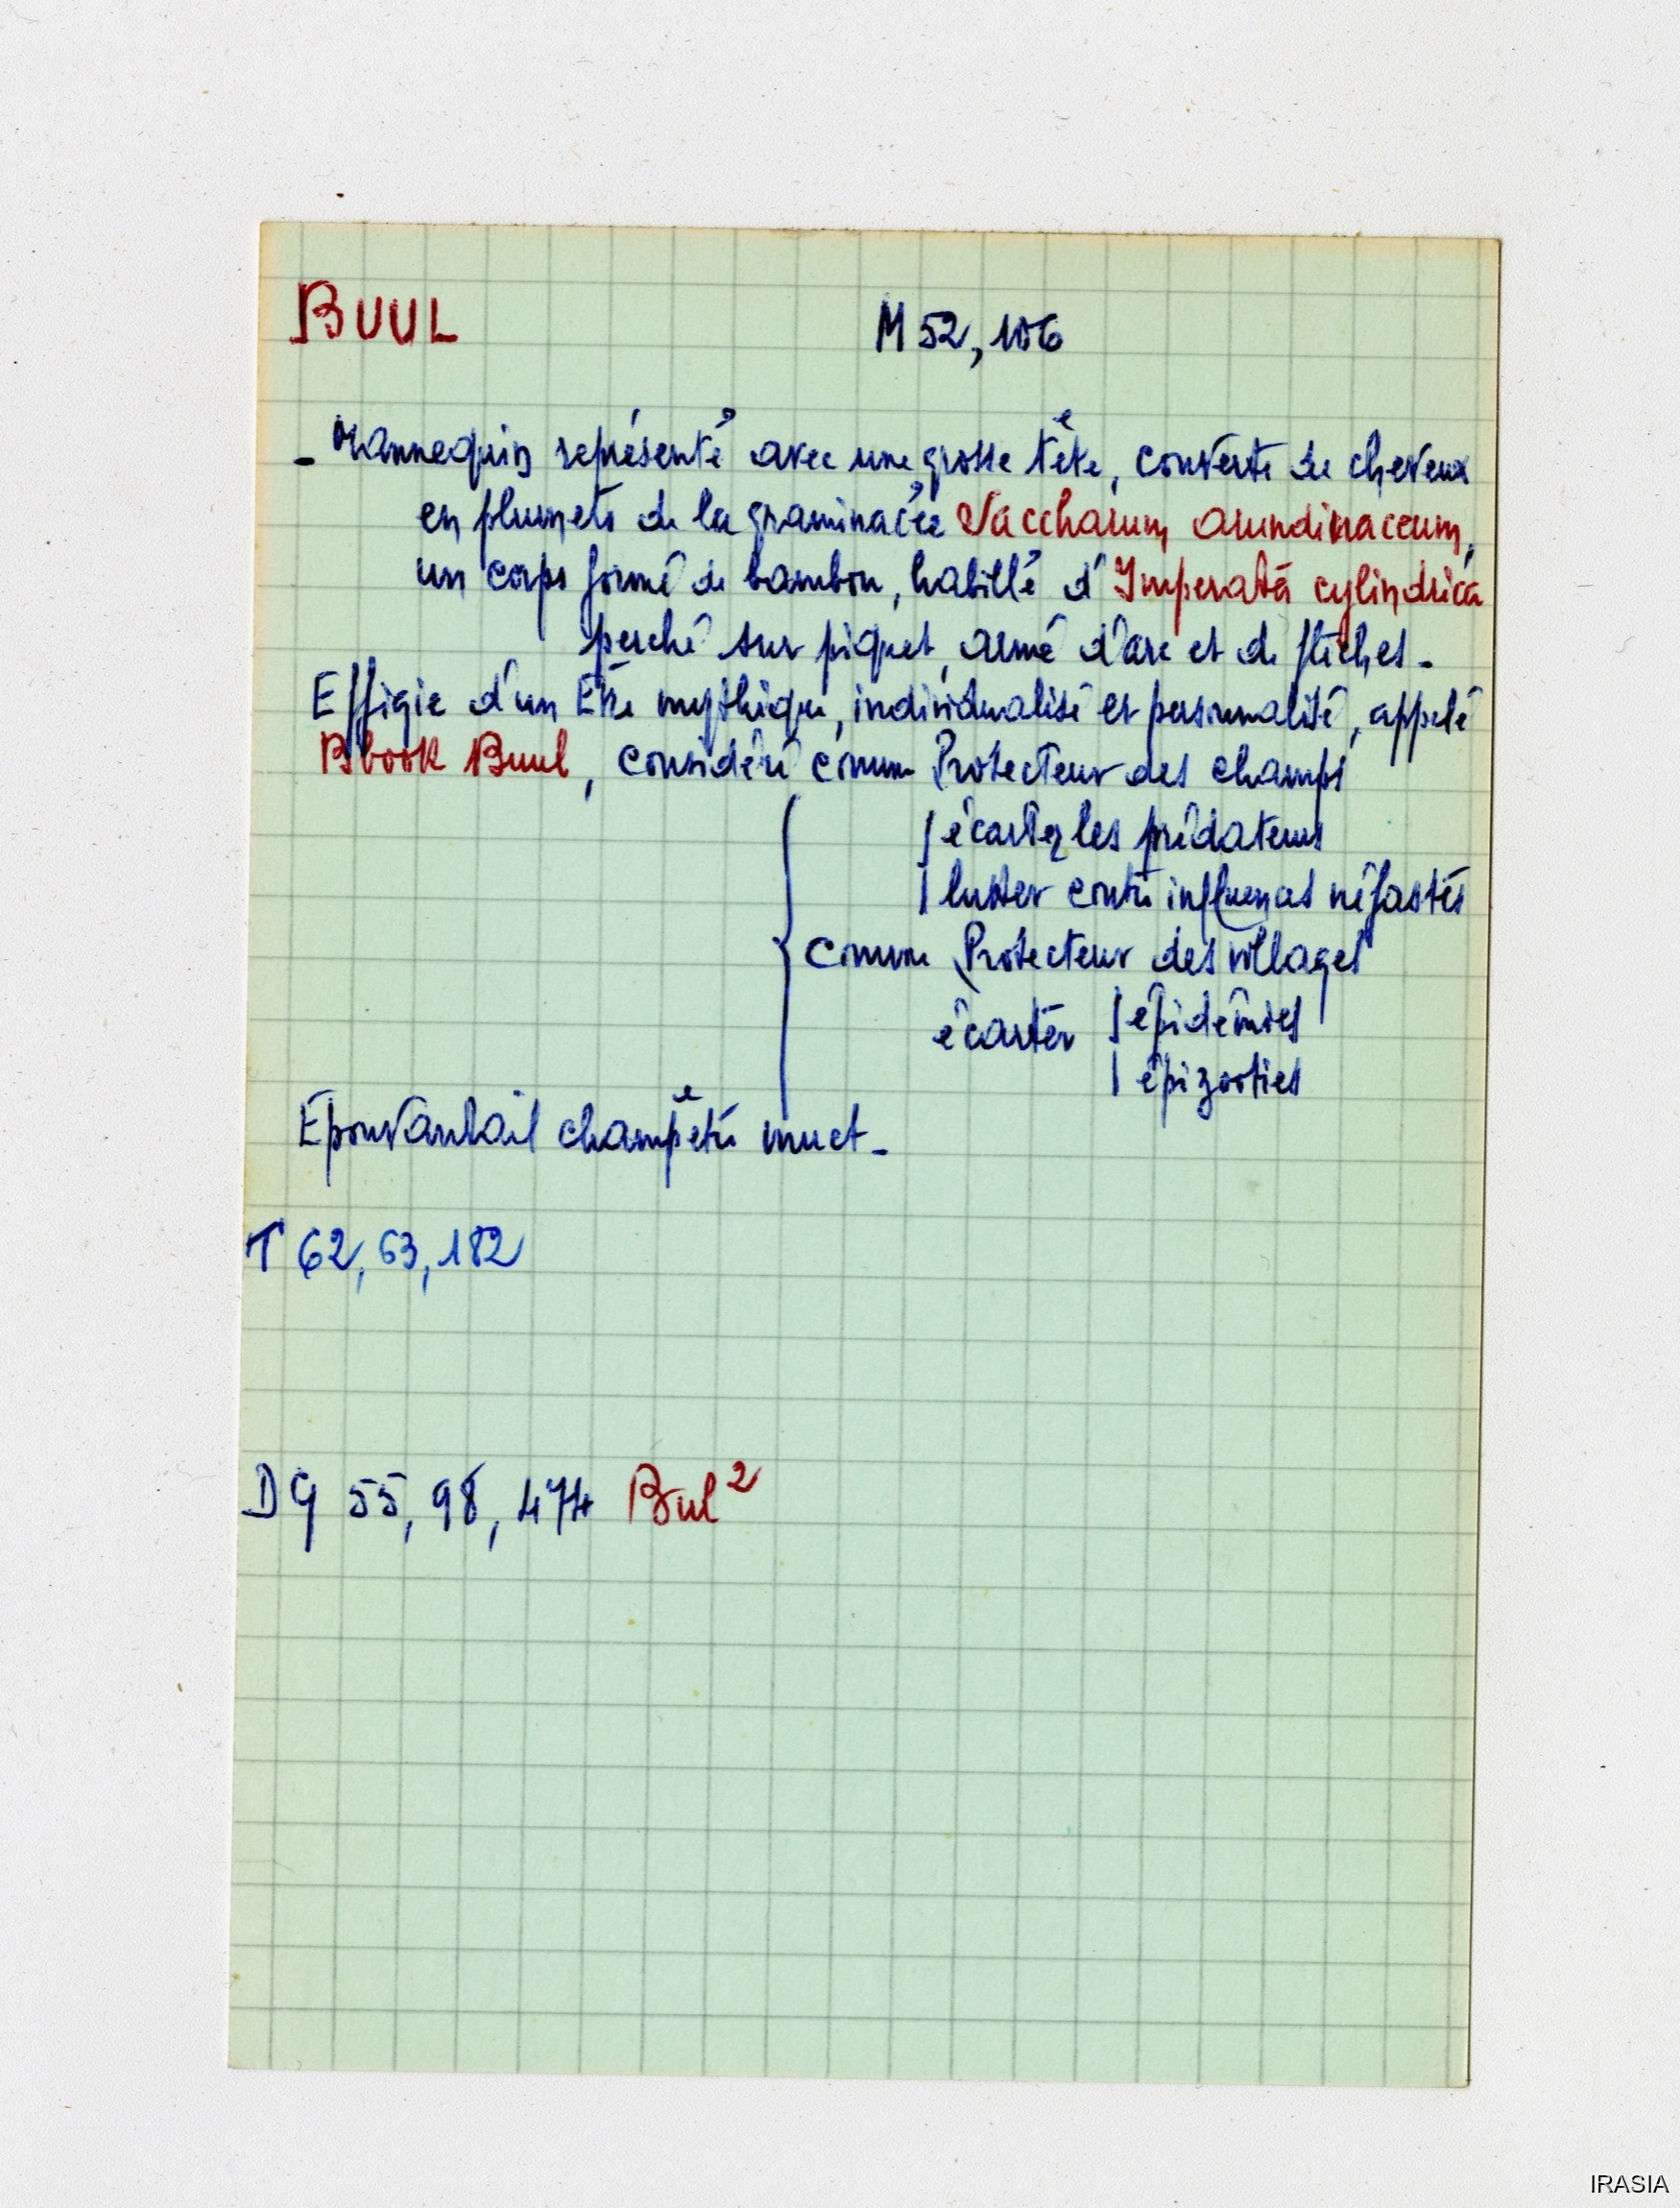 BUUL M 52, 106
- Mannequin représenté avec une grosse tête, couverte de cheveux
en plumets de la graminacée Saccharum arundinaceum,
un corps formé de bambou, habillé d'Imperata cylindrica
perché sur piquet, armé d'arc et de flèches -
Effigie d'un Etre mythique, individualisé et personnalisé, appelé
Bbook Buul, considéré comme Protecteur des champs
écarter les prédateurs
lutter contre influences néfastes
comme Protecteur des villages
écarter épidémies
épizooties
Epouvantail champêtre muet -
T 62, 63, 182
DG 55, 98, 474 Bul²
IRASIA